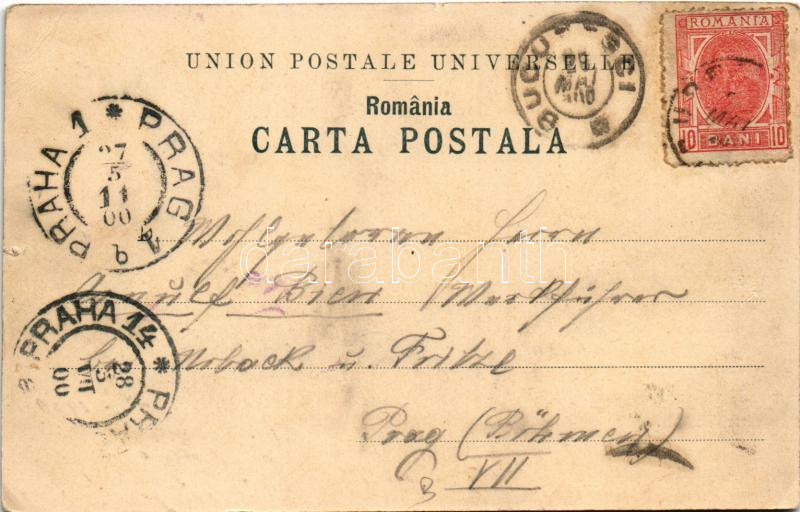 UNION POSTALE UNIVERSELLE
România
CARTA POSTALA
BUCURESCI
MAI
ROMANIA
10 BANI 10
MAI
PRAHA 1 * PRAG 1
27
5
11
00
b
Wohlgeboren Herrn
Arnulf Bien (Werkführer
bei Noback u. Fritze
Prag (Böhmen)
VII
PRAHA 14 *
28
5
VII
00
darabanth